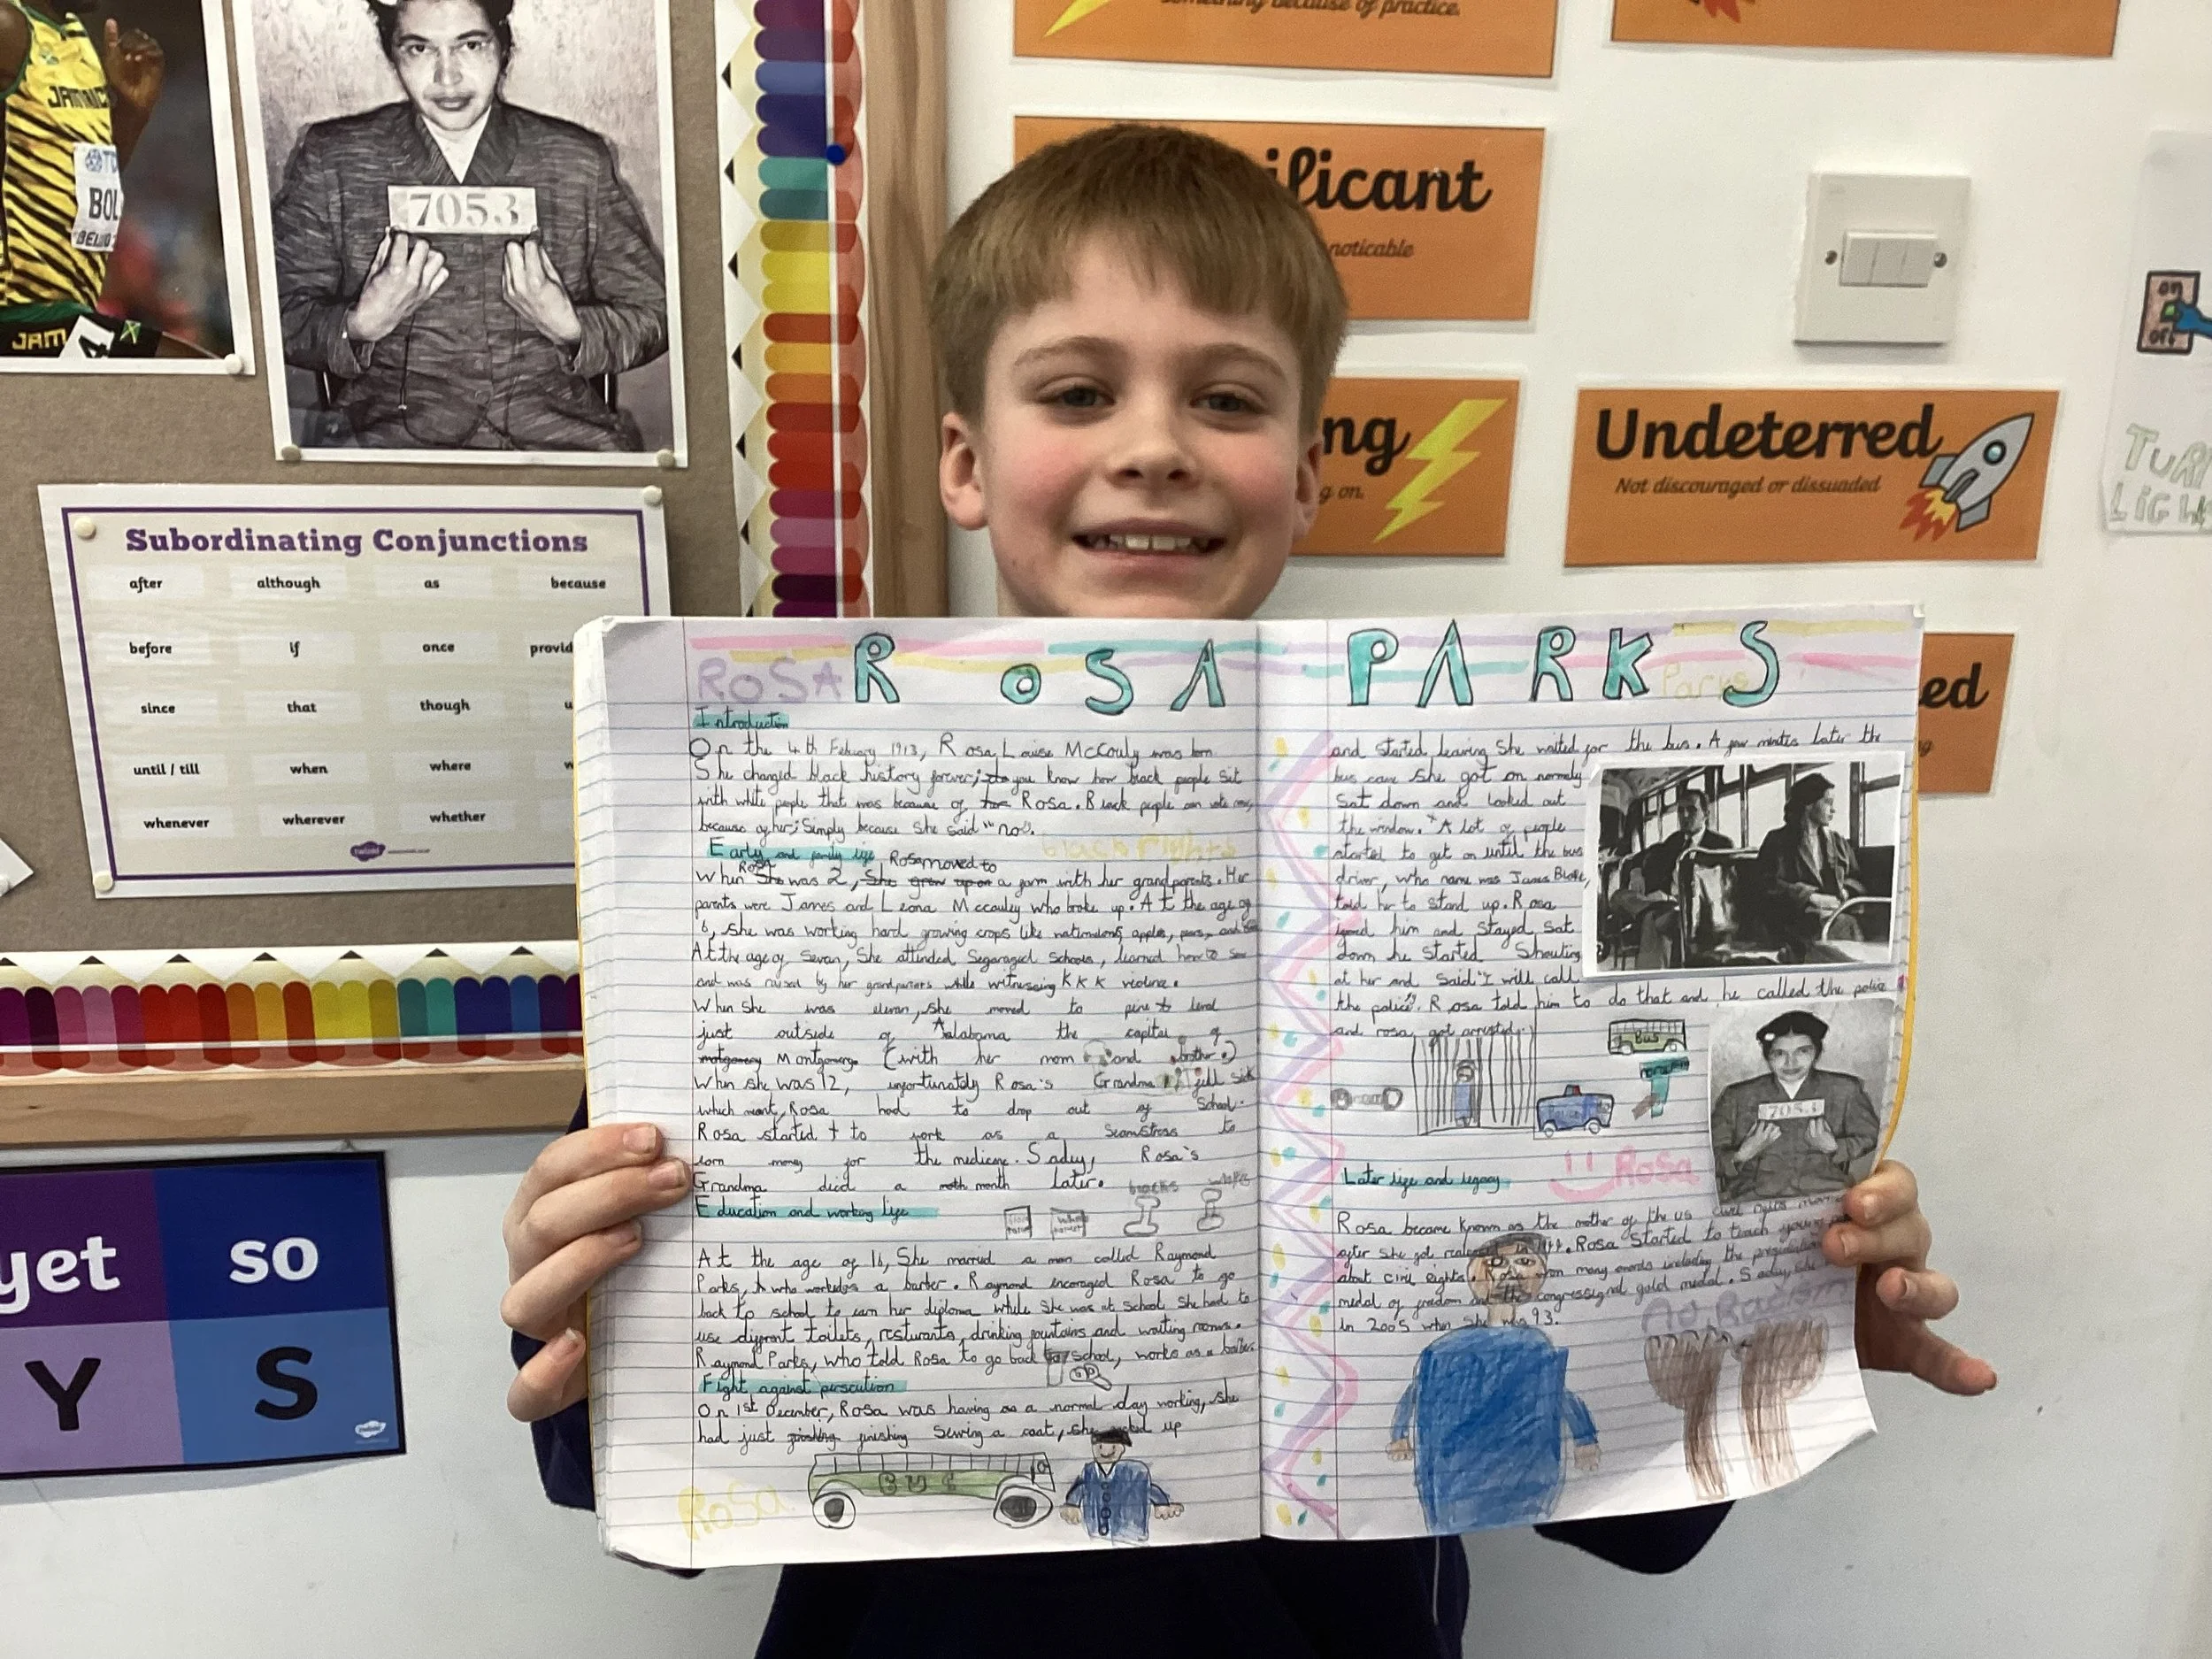 something because of practice.
JAMAICA
BOL
BEIJING
JAM
7053
ificant
noticable
ng
g on.
Undeterred
Not discouraged or dissuaded
on
off
TURN
LIGH
ed
Subordinating Conjunctions
after although as because
before if once provid
since that though u
until / till when where w
whenever wherever whether
twinkl
yet so
Y S
twinkl
ROSA ROSA PARKS Parks
Introduction
On the 4th Febuary 1913, Rosa Louise McCouly was born
She changed black history forever; do you know how black people sit
with white people that was because of her Rosa. Black people can vote now,
because of her; Simply because she said "no".
black rights
Early and family life, Rosa moved to
Rosa
When She was 2, She grew up on a farm with her grandparents. Her
parents were James and Leona Mccauley who broke up. At the age of
6, she was working hard growing crops like watermelons, apples, pears, and
At the age of Sevan, She attended Segaraged Schools, learned how to sew
and was raised by her grandparents while witnessing KKK violence.
When She was elevan, she moved to pine level
just outside of Alabama the capital of
motgomery Montgomery (with her mom and brother.)
When she was 12, unfortunately Rosa's Grandma fell sick
which meant, Rosa had to drop out of School.
Rosa started to work as a Seamstress to
earn money for the medicine. Sadly, Rosa's
Grandma died a moth month later. blacks whites
Education and working life
At the age of 16, She married a man called Raymond
Parks, who worked as a barber. Raymond encoraged Rosa to go
back to school to earn her diploma while she was at school she had to
use diffrent toilets, resturants, drinking fountains and waiting rooms.
Raymond Parks, who told Rosa to go back to school, works as a barber.
Fight against persecution
On 1st December, Rosa was having as a normal day working, she
had just finishing Sewing a coat, she packed up
BUS
Rosa
and started leaving She waited for the bus. A few mintes Later the
bus came she got on normely
Sat down and looked out
the window. A lot of people
started to get on until the bus
driver, who name was James Blake,
told her to stand up. Rosa
ignored him and stayed Sat
down he started Shouting
at her and Said "I will call
the police". Rosa told him to do that and he called the police
and rosa got arrested.
Bus
7053
Later life and legacy
Rosa
Rosa became known as the mother of the us civil rights
after she got released in. Rosa started to teach young
about civil rights. Rosa won many awards including the
medal of freedom and the congressional gold medal. Sadly, she
in 2005 when she was 93.
No Racism